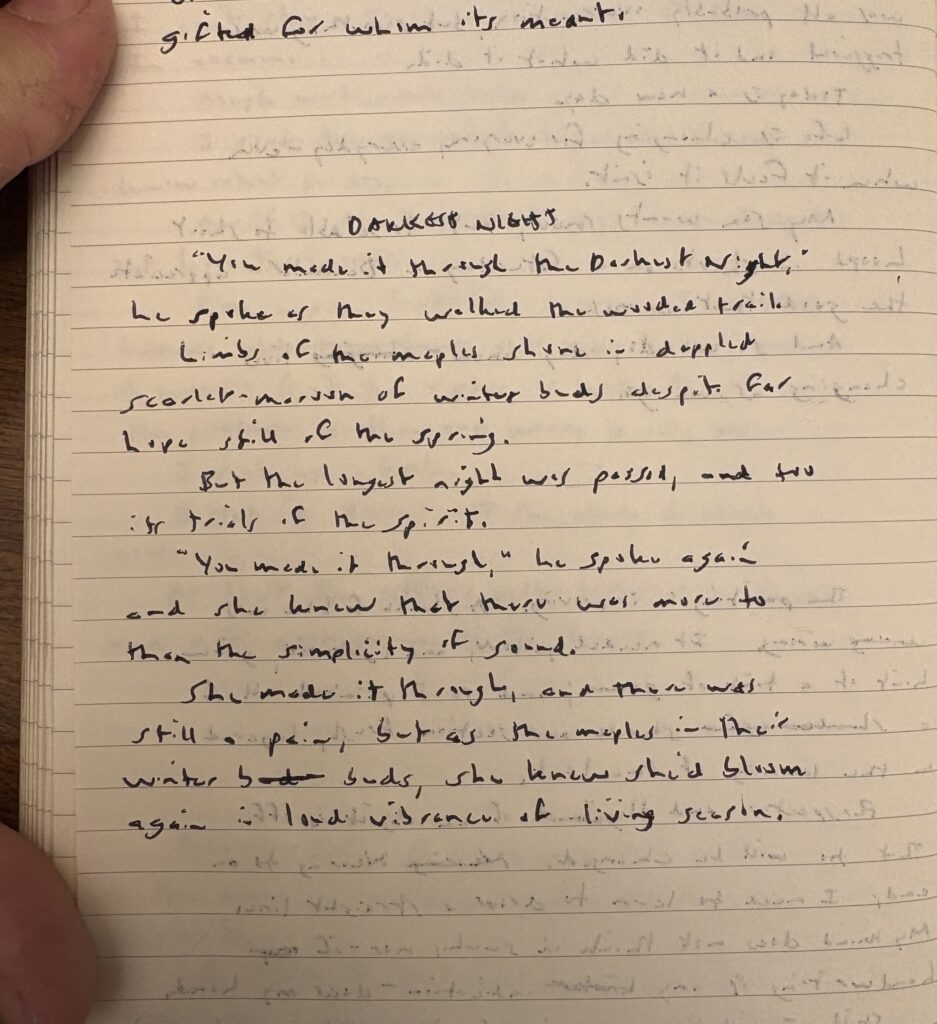 gifted for whim its meant.
DARKEST NIGHT
"You made it through the Darkest Night,"
he spoke as they walked the wooded trail.
Limbs of the maples shone in dappled
scarlet-maroon of winter buds despite far
hope still of the spring.
But the longest night was passed, and too
its trials of the spirit.
"You made it through," he spoke again
and she knew that there was more to
than the simplicity of sound.
She made it through, and there was
still a pain, but as the maples in their
winter buds, she knew she'd bloom
again in loud vibrance of living season.